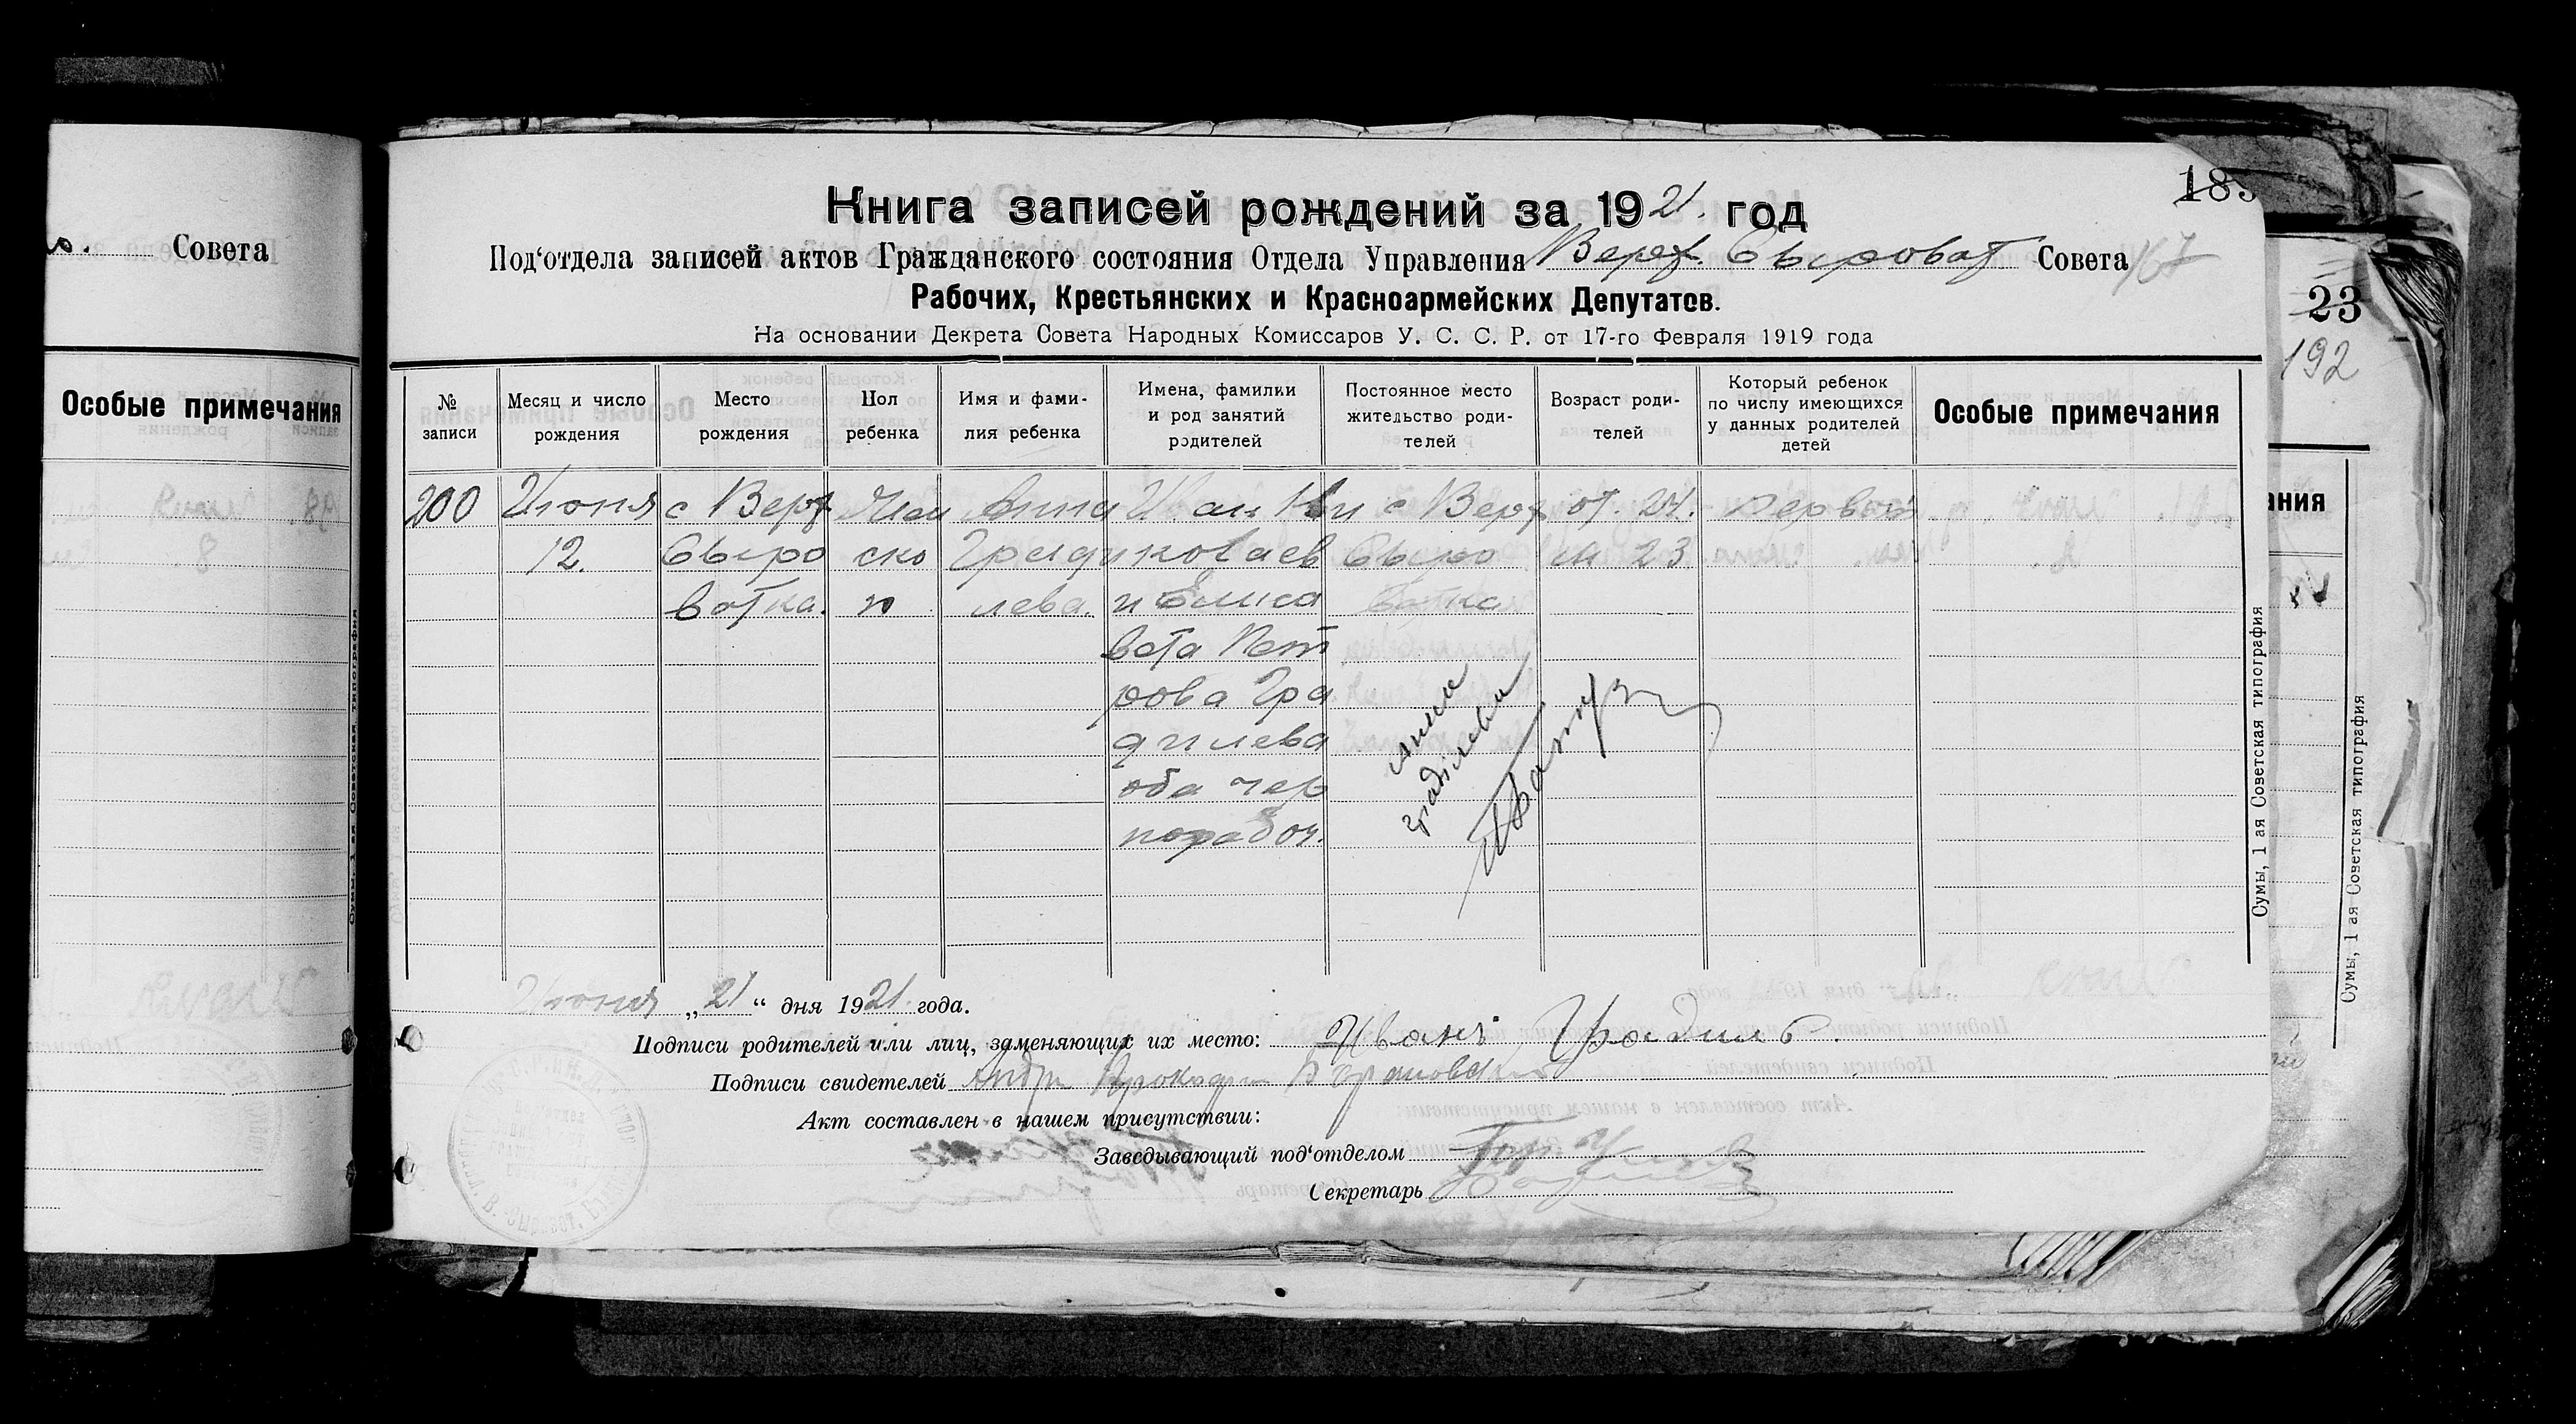 Совета
Особые примечания
183
Книга записей рождений за 1921. год
Под‘отдела записей актов Гражданского состояния Отдела Управления Верх. Сыроват Совета 167
Рабочих, Крестьянских и Красноармейских Депутатов.
На основании Декрета Совета Народных Комиссаров У. С. С. Р. от 17-го Февраля 1919 года
23
192
№ записи
Месяц и число рождения
Место рождения
Пол ребенка
Имя и фами-
лия ребенка
Имена, фамилии и род занятий родителей
Постоянное место жительство роди-
телей
Возраст роди-
телей
Который ребенок по числу имеющихся у данных родителей детей
Особые примечания
ания
200 Июня с Верх Жен Анна с Верх от. 24. первой
12. Сыро ско Сыро м 23
ватка. п лева. и Елиса ватка
вета Пет
рова Гра
дилева
оба чер
норабоч.
Июня „21“ дня 1921 года.
Подписи родителей или лиц, заменяющих их место: Иванъ Градиль
Подписи свидетелей
Акт составлен в нашем присутствии:
Заведывающий под‘отделом
Секретарь
Сумы, 1 ая Советская типография
Сумы, 1 ая Советская типография
Сумы, 1 ая Советская типография